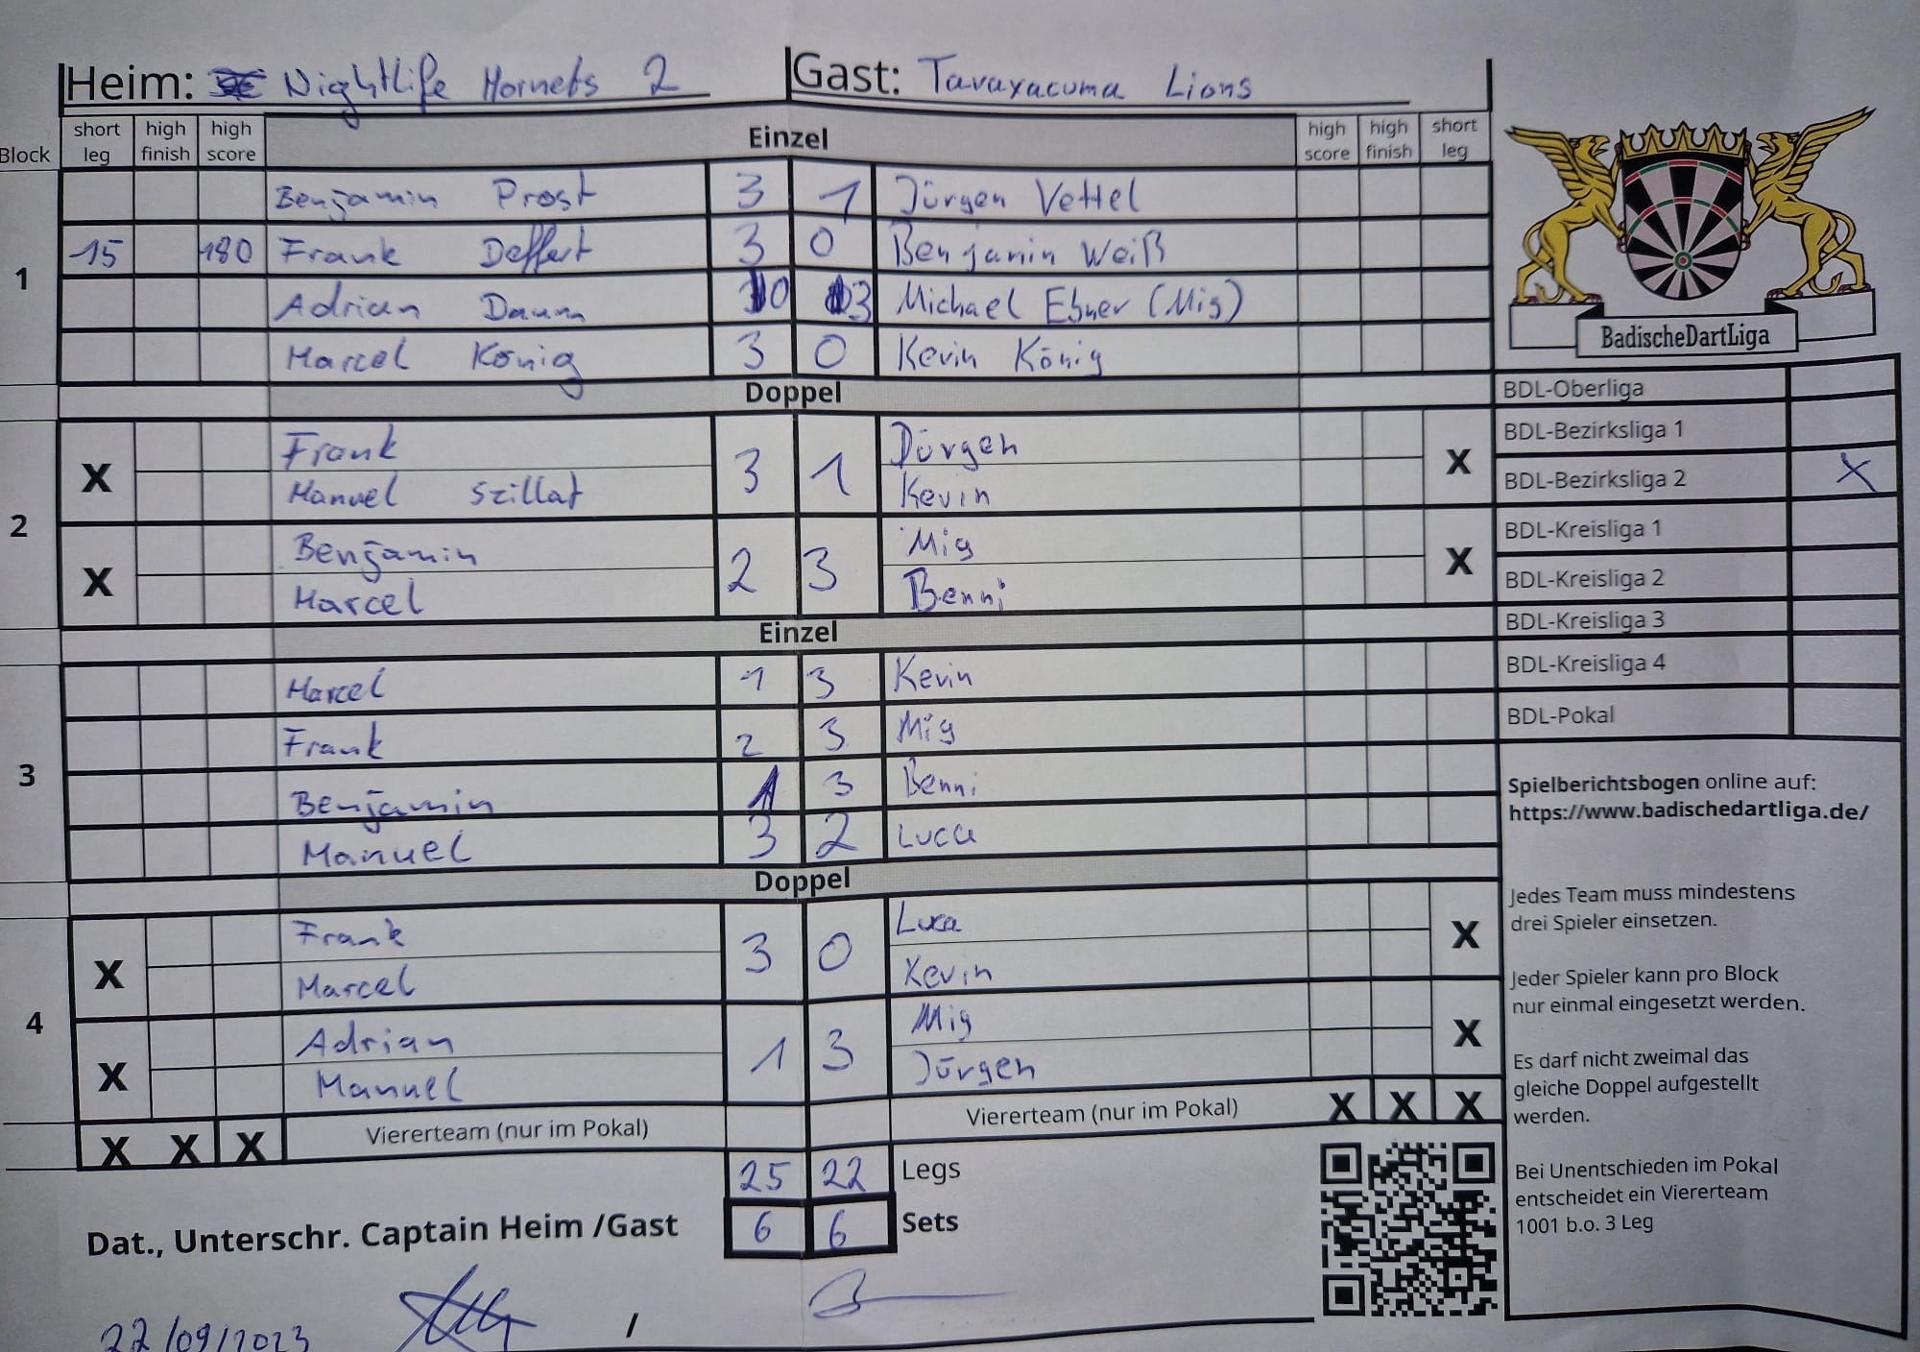 Heim: Nightlife Hornets 2 Gast: Tavaxacuma Lions
Block short leg high finish high score Einzel high score high finish short leg
1
Benjamin Prost 3 1 Jürgen Vettel
15 180 Frank Deffert 3 0 Benjamin Weiß
Adrian Daum 0 3 Michael Ebner (Mig)
Marcel König 3 0 Kevin König
Doppel
2
X Frank 3 1 Dürgen X
Manuel Szillat Kevin
X Benjamin 2 3 Mig X
Marcel Benni
Einzel
3
Marcel 1 3 Kevin
Frank 2 3 Mig
Benjamin 1 3 Benni
Manuel 3 2 Luca
Doppel
4
X Frank 3 0 Luca X
Marcel Kevin
X Adrian 1 3 Mig X
Manuel Jürgen
X X X Viererteam (nur im Pokal) Viererteam (nur im Pokal) X X X
25 22 Legs
6 6 Sets
Dat., Unterschr. Captain Heim /Gast
22/09/2023 /
BadischeDartLiga
BDL-Oberliga
BDL-Bezirksliga 1
BDL-Bezirksliga 2 X
BDL-Kreisliga 1
BDL-Kreisliga 2
BDL-Kreisliga 3
BDL-Kreisliga 4
BDL-Pokal
Spielberichtsbogen online auf:
https://www.badischedartliga.de/
Jedes Team muss mindestens
drei Spieler einsetzen.
Jeder Spieler kann pro Block
nur einmal eingesetzt werden.
Es darf nicht zweimal das
gleiche Doppel aufgestellt
werden.
Bei Unentschieden im Pokal
entscheidet ein Viererteam
1001 b.o. 3 Leg